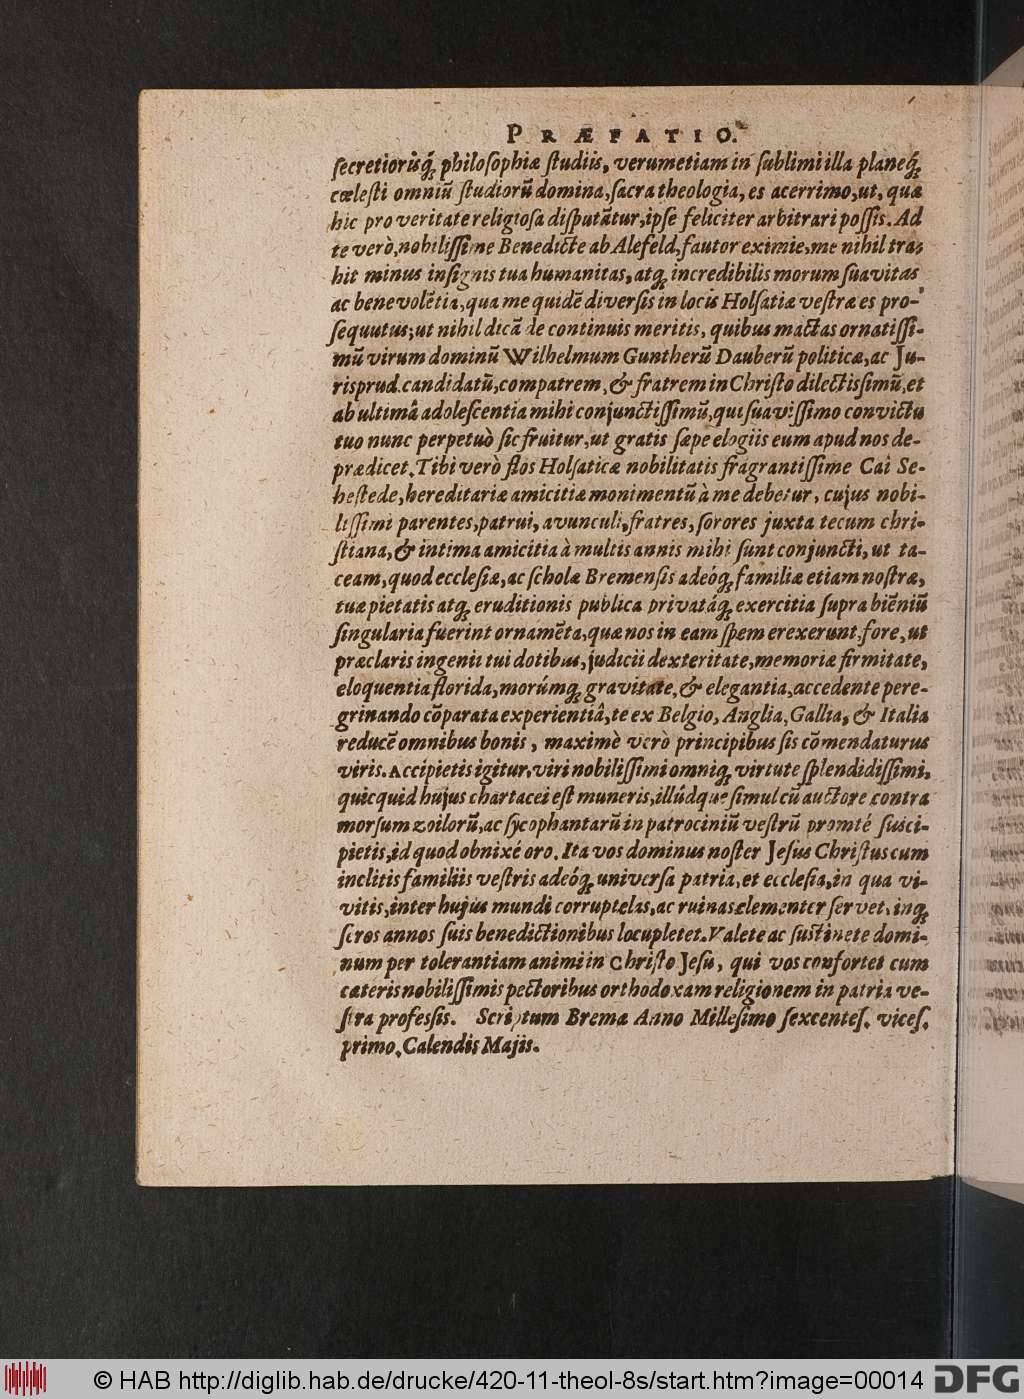 PRÆFATIO.
ſecretiorisq́; philoſophiæ ſtudiis, verumetiam in ſublimi illa planeq́;
cœleſti omniū ſtudiorū domina, ſacra theologia, es acerrimo, ut, quæ
hic pro veritate religioſa diſputātur, ipſe feliciter arbitrari poſſis. Ad
te verò, nobiliſſime Benedicte ab Alefeld, fautor eximie, me nihil tra-
hit minus inſignis tua humanitas, atq; incredibilis morum ſuavitas
ac benevolētia, qua me quidē diverſis in locis Holſatiæ veſtræ es pro-
ſequutus; ut nihil dicā de continuis meritis, quibus mactas ornatiſſi-
mū virum dominū Wilhelmum Guntherū Dauberū politicæ, ac Ju-
risprud. candidatū, compatrem, & fratrem in Chriſto dilectisſimū, et
ab ultimâ adoleſcentia mihi conjunctiſſimū, qui ſuaviſſimo convictu
tuo nunc perpetuò ſic fruitur, ut gratis ſæpe elogiis eum apud nos de-
prædicet. Tibi verò flos Holſaticæ nobilitatis fragrantiſſime Cai Se-
heſtede, hereditariæ amicitiæ monimentū à me debetur, cujus nobi-
liſſimi parentes, patrui, avunculi, fratres, ſorores juxta tecum chri-
ſtiana, & intima amicitia à multis annis mihi ſunt conjuncti, ut ta-
ceam, quod eccleſiæ, ac ſcholæ Bremenſis adeóq; familiæ etiam noſtræ,
tuæ pietatis atq; eruditionis publica privatáq; exercitia ſupra biēniū
ſingularia fuerint ornamēta, quæ nos in eam ſpem erexerunt, fore, ut
præclaris ingenii tui dotibus, judicii dexteritate, memoriæ firmitate,
eloquentia florida, morúmq; gravitate, & elegantia, accedente pere-
grinando cōparata experientiâ, te ex Belgio, Anglia, Gallia, & Italia
reducē omnibus bonis, maximè verò principibus ſis cōmendaturus
viris. Accipietis igitur, viri nobiliſſimi omniq; virtute ſplendidiſſimi,
quicquid hujus chartacei eſt muneris, illúdque ſimul cū auctore contra
morſum zoilorū, ac ſycophantarū in patrociniū veſtrū promté ſuſci-
pietis, id quod obnixé oro. Ita vos dominus noſter Jeſus Chriſtus cum
inclitis familiis veſtris adeóq; univerſa patria, et eccleſia, in qua vi-
vitis, inter hujus mundi corruptelas, ac ruinas clementer ſervet, inq;
ſeros annos ſuis benedictionibus locupletet. Valete ac ſuſtinete domi-
num per tolerantiam animi in Chriſto Jeſu, qui vos confortet cum
cæteris nobiliſſimis pectoribus orthodoxam religionem in patria ve-
ſtra profeſſis. Scriptum Bremæ Anno Milleſimo ſexcenteſ. viceſ.
primo, Calendis Majis.
© HAB http://diglib.hab.de/drucke/420-11-theol-8s/start.htm?image=00014
DFG